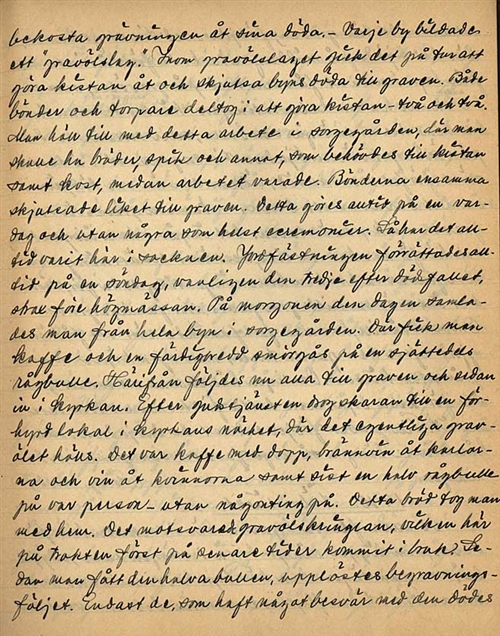 bekosta grävningen åt sina döda. – Varje by bildade
ett "gravölslag." Inom gravölslaget gick det på tur att
göra kistan åt och skjutsa byns döda till graven. Både
bönder och torpare deltog i att göra kistan – två och två.
Man höll till med detta arbete i sorgegården, där man
skulle ha bräder, spik och annat, som behövdes till kistan
samt kost, medan arbetet varade. Bönderna ensamma
skjutsade liket till graven. Detta göres alltid på en var-
dag och utan några som helst ceremonier. Så har det all-
tid varit här i socknen. Jordfästningen förrättades all-
tid på en söndag, vanligen den tredje efter dödsfallet,
strax före högmässan. På morgonen den dagen samla-
des man från hela byn i sorgegården. Där fick man
kaffe och en färdigbredd smörgås på en sjättedels
rågbulle. Härifrån följdes nu alla till graven och sedan
in i kyrkan. Efter gudstjänsten drog skaran till en för-
hyrd lokal i kyrkans närhet, där det egentliga grav-
ölet hölls. Det var kaffe med dopp, brännvin åt karlar-
na och vin åt kvinnorna samt sist en halv rågbulle
på var person – utan någonting på. Detta bröd tog man
med hem. Det motsvarade gravölskringlan, vilken här
på trakten först på senare tider kommit i bruk. Se-
dan man fått den halva bullen, upplöstes begravnings-
följet. Endast de, som haft något besvär med den dödes